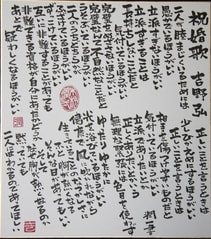 祝婚歌　吉野弘
二人が睦まじくいるためには
愚かでいるほうがいい
立派すぎないほうがいい
立派すぎることは
長持ちしないことだと
気付いているほうがいい
完璧をめざさないほうがいい
完璧なんて不自然なことだと
うそぶいているほうがいい
二人のうちどちらかが
ふざけているほうがいい
ずっこけているほうがいい
互いに非難することがあっても
非難できる資格が自分にあったかどうか
あとで
疑わしくなるほうがいい
正しいことを言うときは
少しひかえめにするほうがいい
正しいことを言うときは
相手を傷つけやすいものだと
気付いているほうがいい
立派でありたいとか
正しくありたいとかいう
無理な緊張には色目を使わず
ゆったりゆたかに
光を浴びているほうがいい
健康で風に吹かれながら
生きていることのなつかしさに
ふと胸が熱くなる
そんな日があってもいい
そして
なぜ胸が熱くなるのか
黙っていても
二人にはわかるのであってほしい